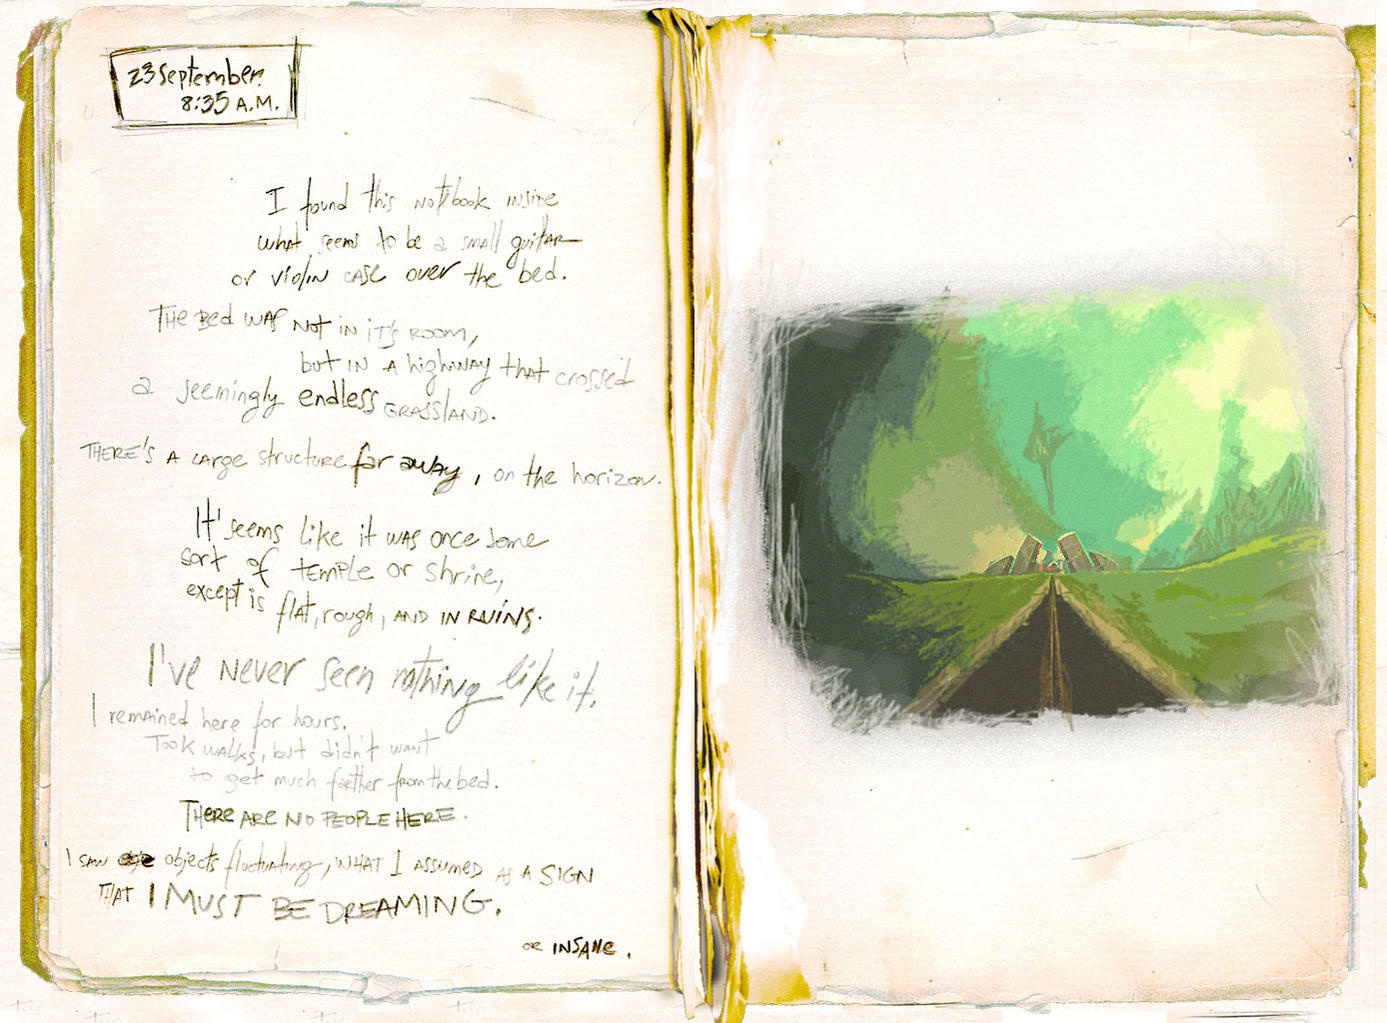 23 September.
8:35 A.M.
I found this notebook inside
what seems to be a small guitar
or violin case over the bed.
THE BED WAS NOT IN IT'S ROOM,
but IN A highway that crossed
a seemingly endless GRASSLAND.
THERE'S A LARGE structure far away, on the horizon.
It seems like it was once some
sort of TEMPLE or shrine,
except is flat, rough, AND IN RUINS.
I've NEVER seen nothing like it.
I remained here for hours.
Took walks, but didn't want
to get much farther from the bed.
THERE ARE NO PEOPLE HERE.
I SAW objects fluctuating, WHAT I ASSUMED AS A SIGN
THAT I MUST BE DREAMING.
OR INSANE.